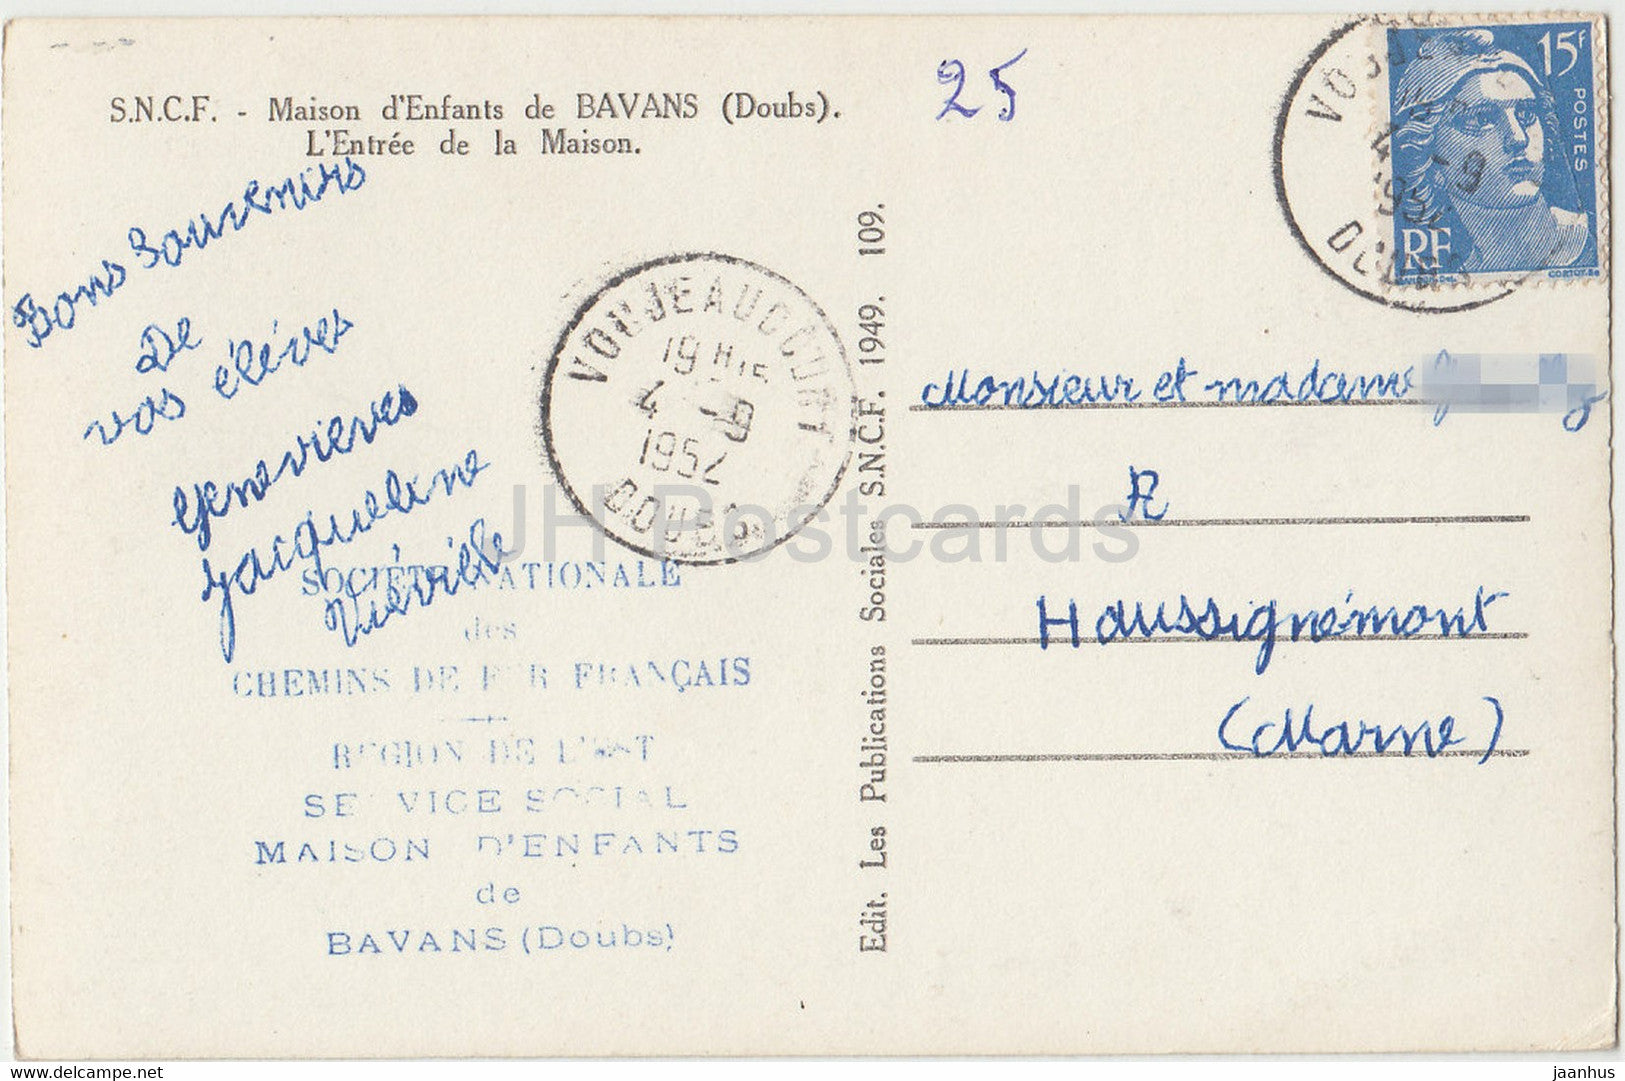 S.N.C.F. - Maison d'Enfants de BAVANS (Doubs).
L'Entrée de la Maison.
25
Bons Souvenirs
De
vos élèves
Geneviève
Jacqueline
Viéville
VOUJEAUCOURT
19H15
4 -9
1952
DOUBS
SOCIÉTÉ NATIONALE
des
CHEMINS DE FER FRANÇAIS
REGION DE L'EST
SERVICE SOCIAL
MAISON D'ENFANTS
de
BAVANS (Doubs)
Edit. Les Publications Sociales S.N.C.F. 1949. 109.
15F
POSTES
RF
CORTOT.Sc
4 -9
1952
DOUBS
Monsieur et madame
A
Haussignémont
(Marne)
JH Postcards
www.delcampe.net
jaanhus